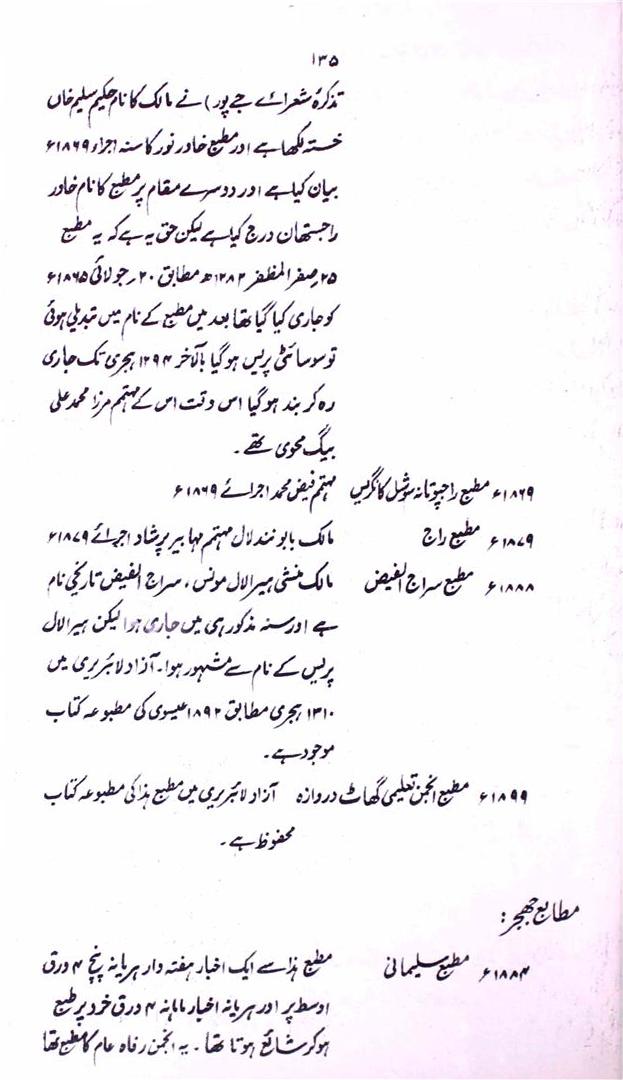 ۱۳۵
تذکرۂ شعرائے جے پور) نے مالک کا نام حکیم سلیم خاں
خستہ لکھا ہے اور مطبع خاور نور کا سنہ اجراء ۱۸۶۹ء
بیان کیا ہے اور دوسرے مقام پر مطبع کا نام خاور
راجستھان درج کیا ہے لیکن حق یہ ہے کہ یہ مطبع
۲۵ صفر المظفر ۱۲۸۲ھ مطابق ۲۰ جولائی ۱۸۶۵ء
کو جاری کیا گیا تھا بعد میں مطبع کے نام میں تبدیلی ہوئی
تو سوسائٹی پریس ہو گیا بالآخر ۱۲۹۴ ہجری تک جاری
رہ کر بند ہو گیا اس وقت اس کے مہتمم مرزا محمد علی
بیگ محوی تھے۔
۱۸۶۹ء مطبع راجپوتانہ سوشل کانگریس مہتمم فیض محمد اجرائے ۱۸۶۹ء
۱۸۷۹ء مطبع راج مالک بابو نند لال مہتمم مہابیر پرشاد اجرائے ۱۸۷۹ء
۱۸۸۸ء مطبع سراج الفیض مالک منشی ہیرا لال مونس، سراج الفیض تاریخی نام
ہے اور سنہ مذکور ہی میں جاری ہوا لیکن ہیرا لال
پریس کے نام سے مشہور ہوا۔ آزاد لائبریری میں
۱۳۱۰ ہجری مطابق ۱۸۹۲ عیسوی کی مطبوعہ کتاب
موجود ہے۔
۱۸۹۹ء مطبع انجمن تعلیمی گھاٹ دروازہ آزاد لائبریری میں مطبع ہذا کی مطبوعہ کتاب
محفوظ ہے۔
مطابع جھجر:
۱۸۸۴ء مطبع سلیمانی مطبع ہذا سے ایک اخبار ہفتہ دار ہریانہ پنچ ۴ ورق
اوسط پر اور ہریانہ اخبار ماہانہ ۴ ورق خرد پر طبع
ہو کر شائع ہوتا تھا۔ یہ انجمن رفاہ عام کا مطبع تھا